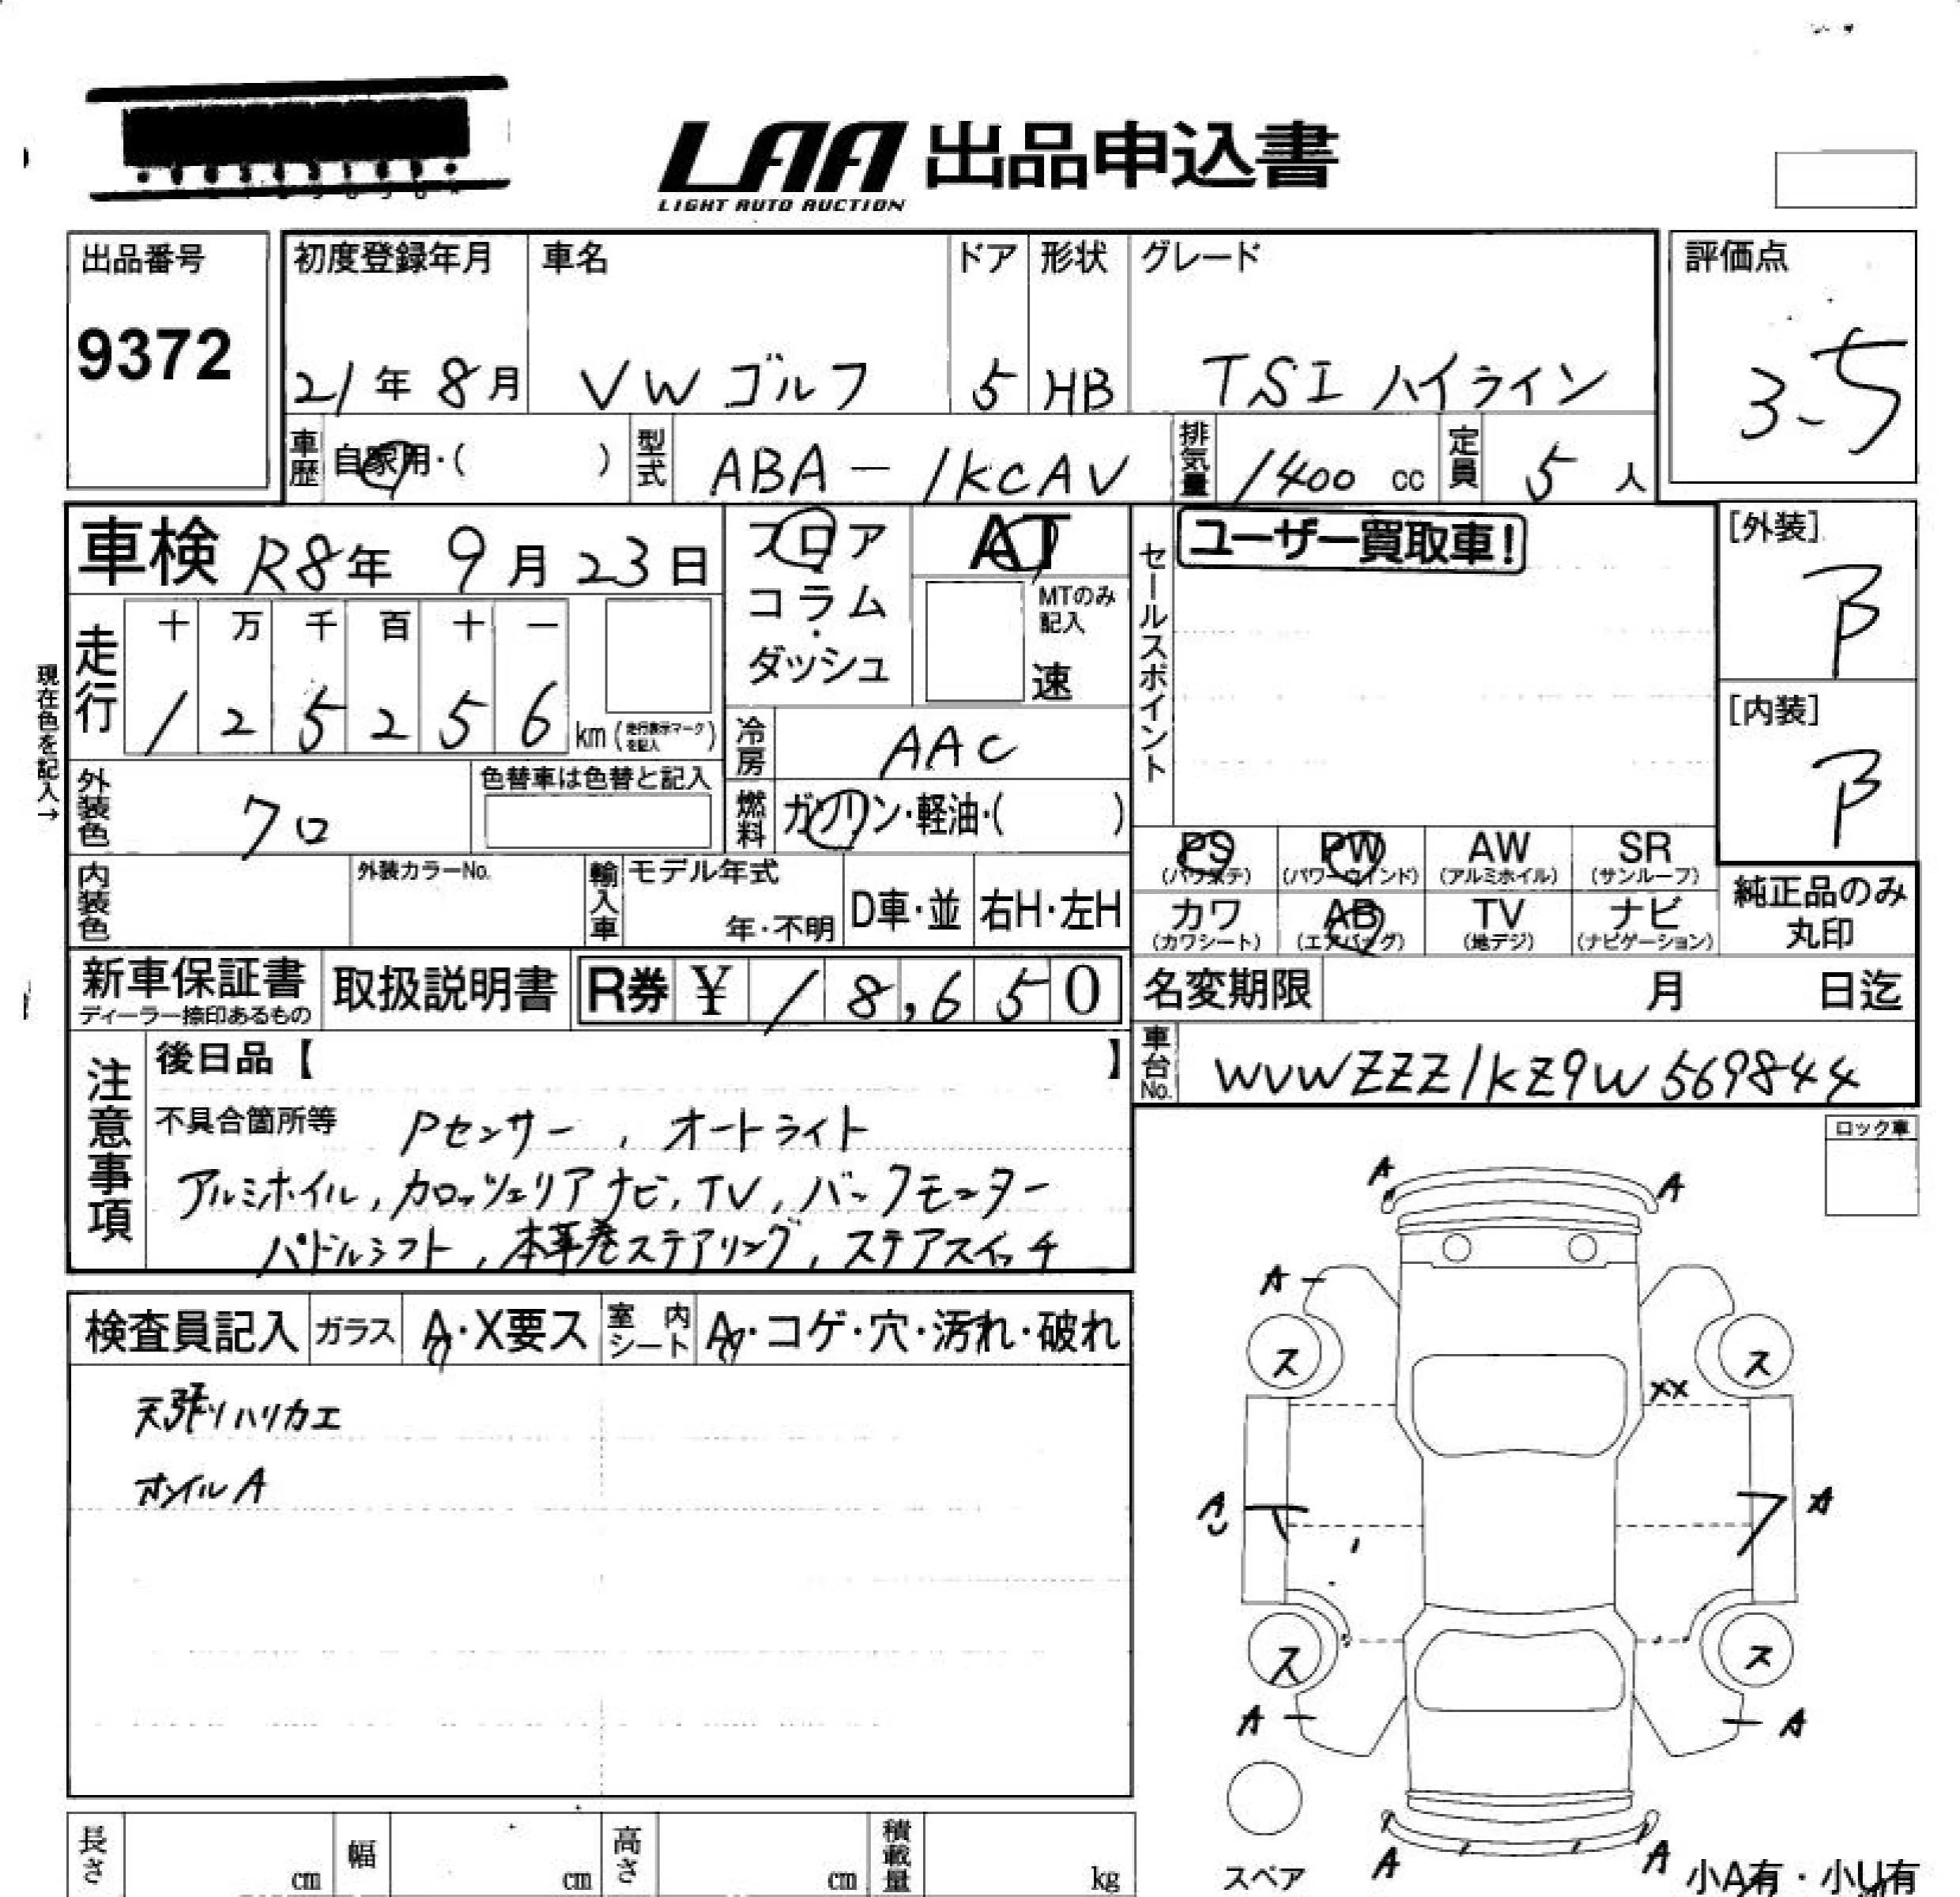 LAA 出品申込書
LIGHT AUTO AUCTION
出品番号
9372
初度登録年月
21年 8月
車名
VW ゴルフ
ドア
5
形状
HB
グレード
TSI ハイライン
評価点
3-5
車歴
自家用・( )
型式
ABA-1KCAV
排気量
1400 cc
定員
5 人
車検 R8年 9月 23日
フロア
コラム
・
ダッシュ
AT
MTのみ
記入
速
セールスポイント
ユーザー買取車!
[外装]
B
[内装]
B
現在色を記入→
走行
十 万 千 百 十 一
1 2 5 2 5 6 km (走行表示マークを記入)
冷房
AAC
外装色
クロ
色替車は色替と記入
燃料
ガソリン・軽油・( )
PS
(パワステ)
PW
(パワーウインド)
AW
(アルミホイル)
SR
(サンルーフ)
カワ
(カワシート)
AB
(エアバッグ)
TV
(地デジ)
ナビ
(ナビゲーション)
純正品のみ
丸印
内装色
外装カラーNo.
輸入車
モデル年式
年・不明
D車・並
右H・左H
新車保証書
ディーラー捺印あるもの
取扱説明書
R券 ¥ 18,650
名変期限 月 日迄
車台No.
WVWZZZ1KZ9W569844
注意事項
後日品【 】
不具合箇所等 Pセンサー, オートライト
アルミホイル, カロッツェリアナビ, TV, バックモニター
パドルシフト, 本革巻ステアリング, ステアスイッチ
ロック車
検査員記入
ガラス
A・X要ス
室内シート
A・コゲ・穴・汚れ・破れ
天張りハリカエ
ホイルA
A A
A
ス ス
XX
A A
ス ス
A A
A A
スペア
小A有・小U有
長さ cm
幅 cm
高さ cm
積載量 kg